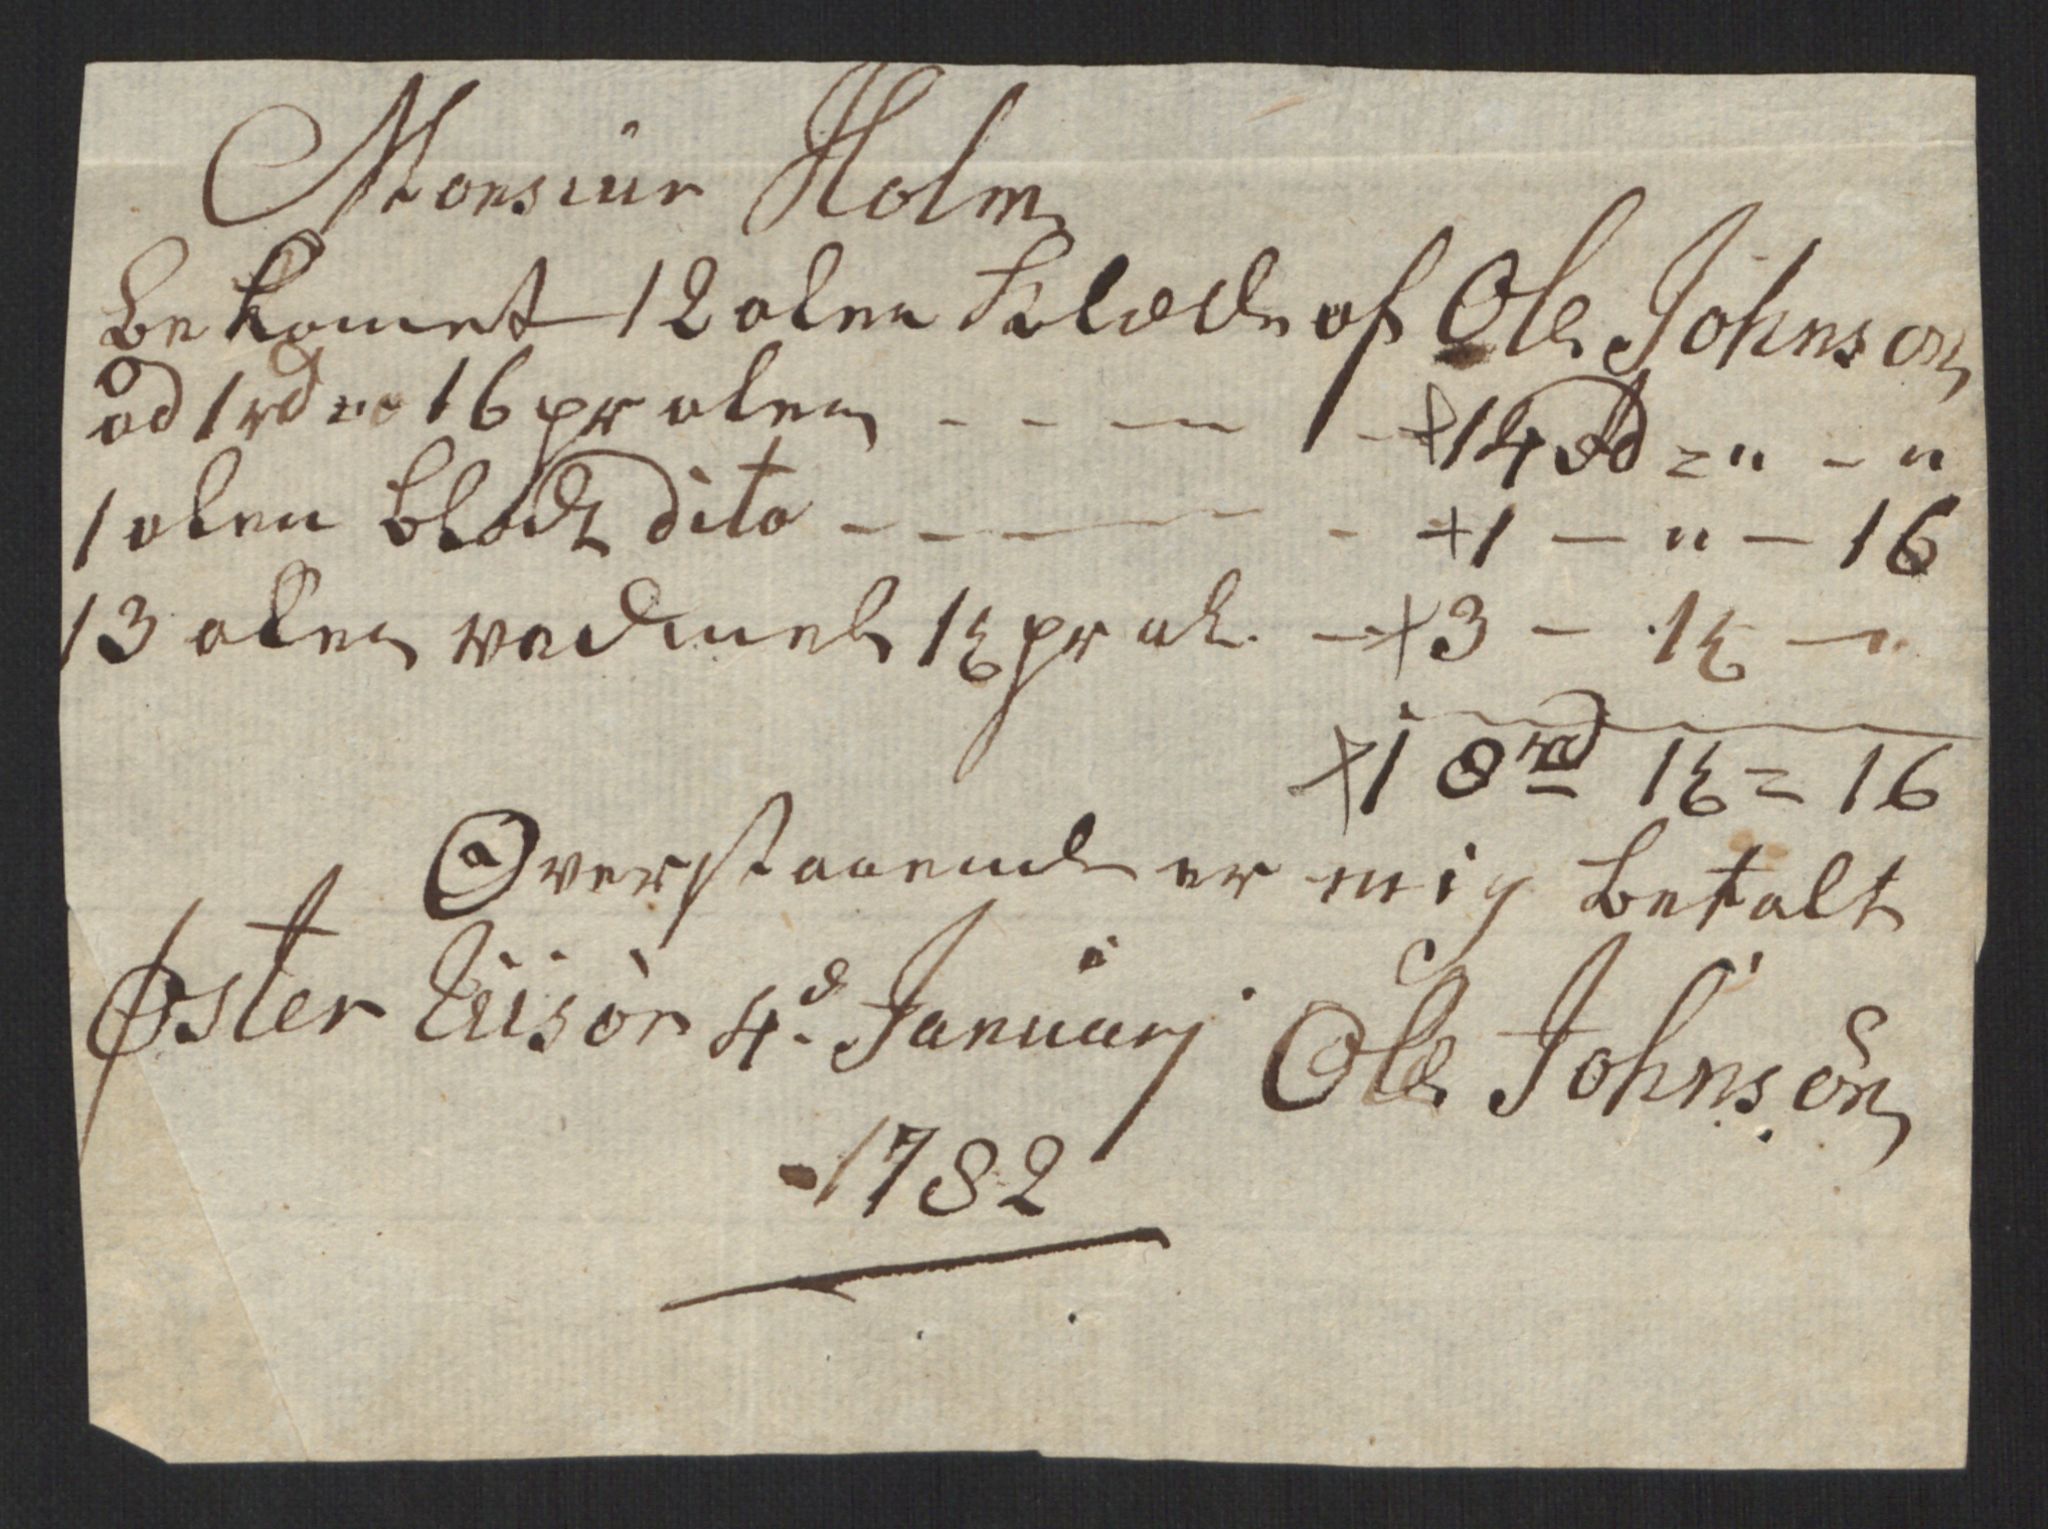 Monsiur Holm
bekomet 12 alen Klæde af Ole Johnson
ad 1 rd " 16 pr alen - - - - - 14 Rd = " - "
1 alen blodt dito - - - - - 1 - " - 16
13 alen vadmel 1 ƶ pr al. - 3 - 1 ƶ - "
18 rd 1 ƶ = 16
Overstaaende er mig betalt
Øster Riisör 4d Januarj Ole Johnsön
1782